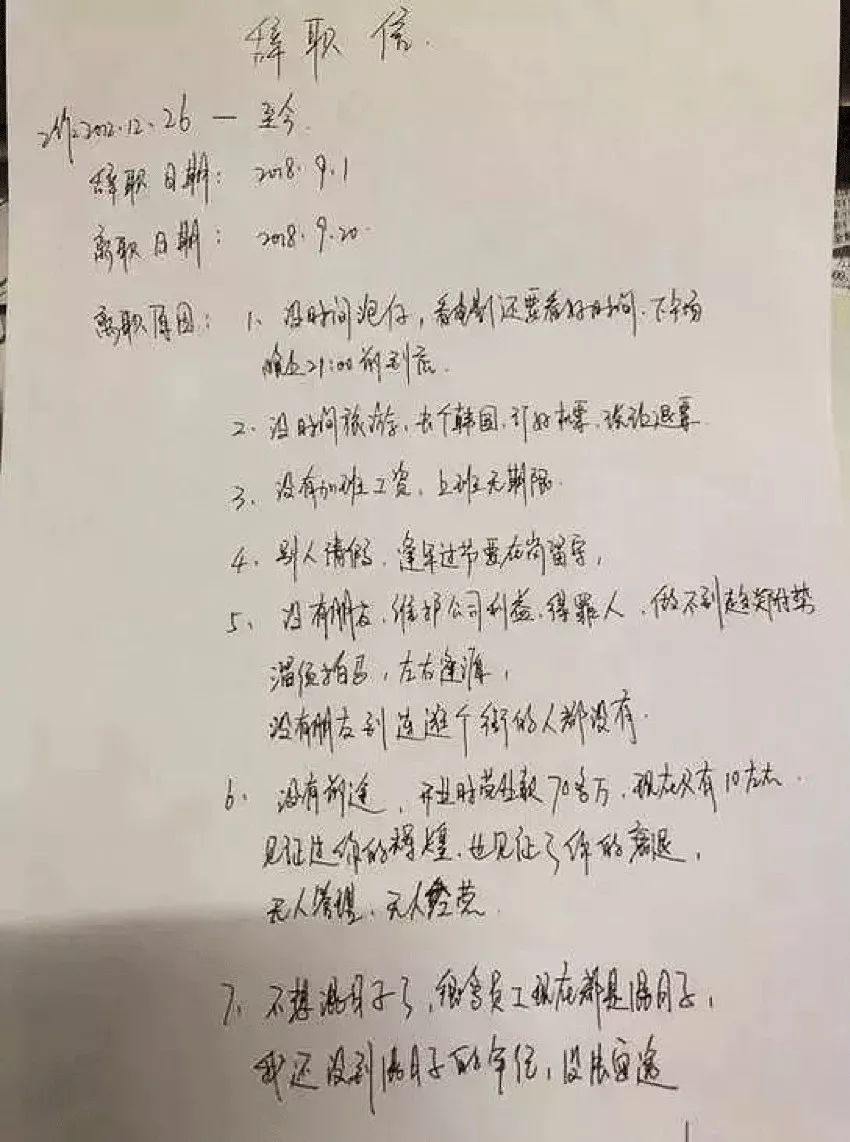 辞职信.
工作2012.12.26 — 至今.
辞职日期: 2018.9.1
离职日期: 2018.9.20.
离职原因: 1、没时间泡仔,看电影还要看好时间.下午场
晚上21:00前到店.
2、没时间旅游、去个韩国,订好机票、被迫退票.
3、没有加班工资、上班无期限.
4、别人请假、逢年过节要在岗留守,
5、没有朋友、维护公司利益、得罪人、做不到趋炎附势
溜须拍马,左右逢源,
没有朋友到连逛个街的人都没有.
6、没有前途、开业时营业额70多万、现在只有10左右.
见证过你的辉煌、也见证了你的衰退,
无人管理、无人经营.
7、不想混日子了,很多员工现在都是混日子,
我还没到混日子的年纪,没法